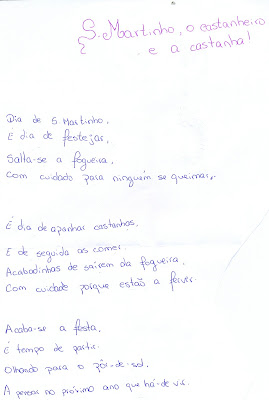 S. Martinho, o castanheiro
e a castanha!
Dia de S. Martinho,
É dia de festejar,
Salta-se a fogueira,
Com cuidado para ninguém se queimar.
É dia de apanhar castanhas,
E de seguida as comer.
Acabadinhas de saírem da fogueira,
Com cuidado porque estão a ferver.
Acaba-se a festa,
É tempo de partir.
Olhando para o pôr-do-sol.
A pensar no próximo ano que há-de vir.